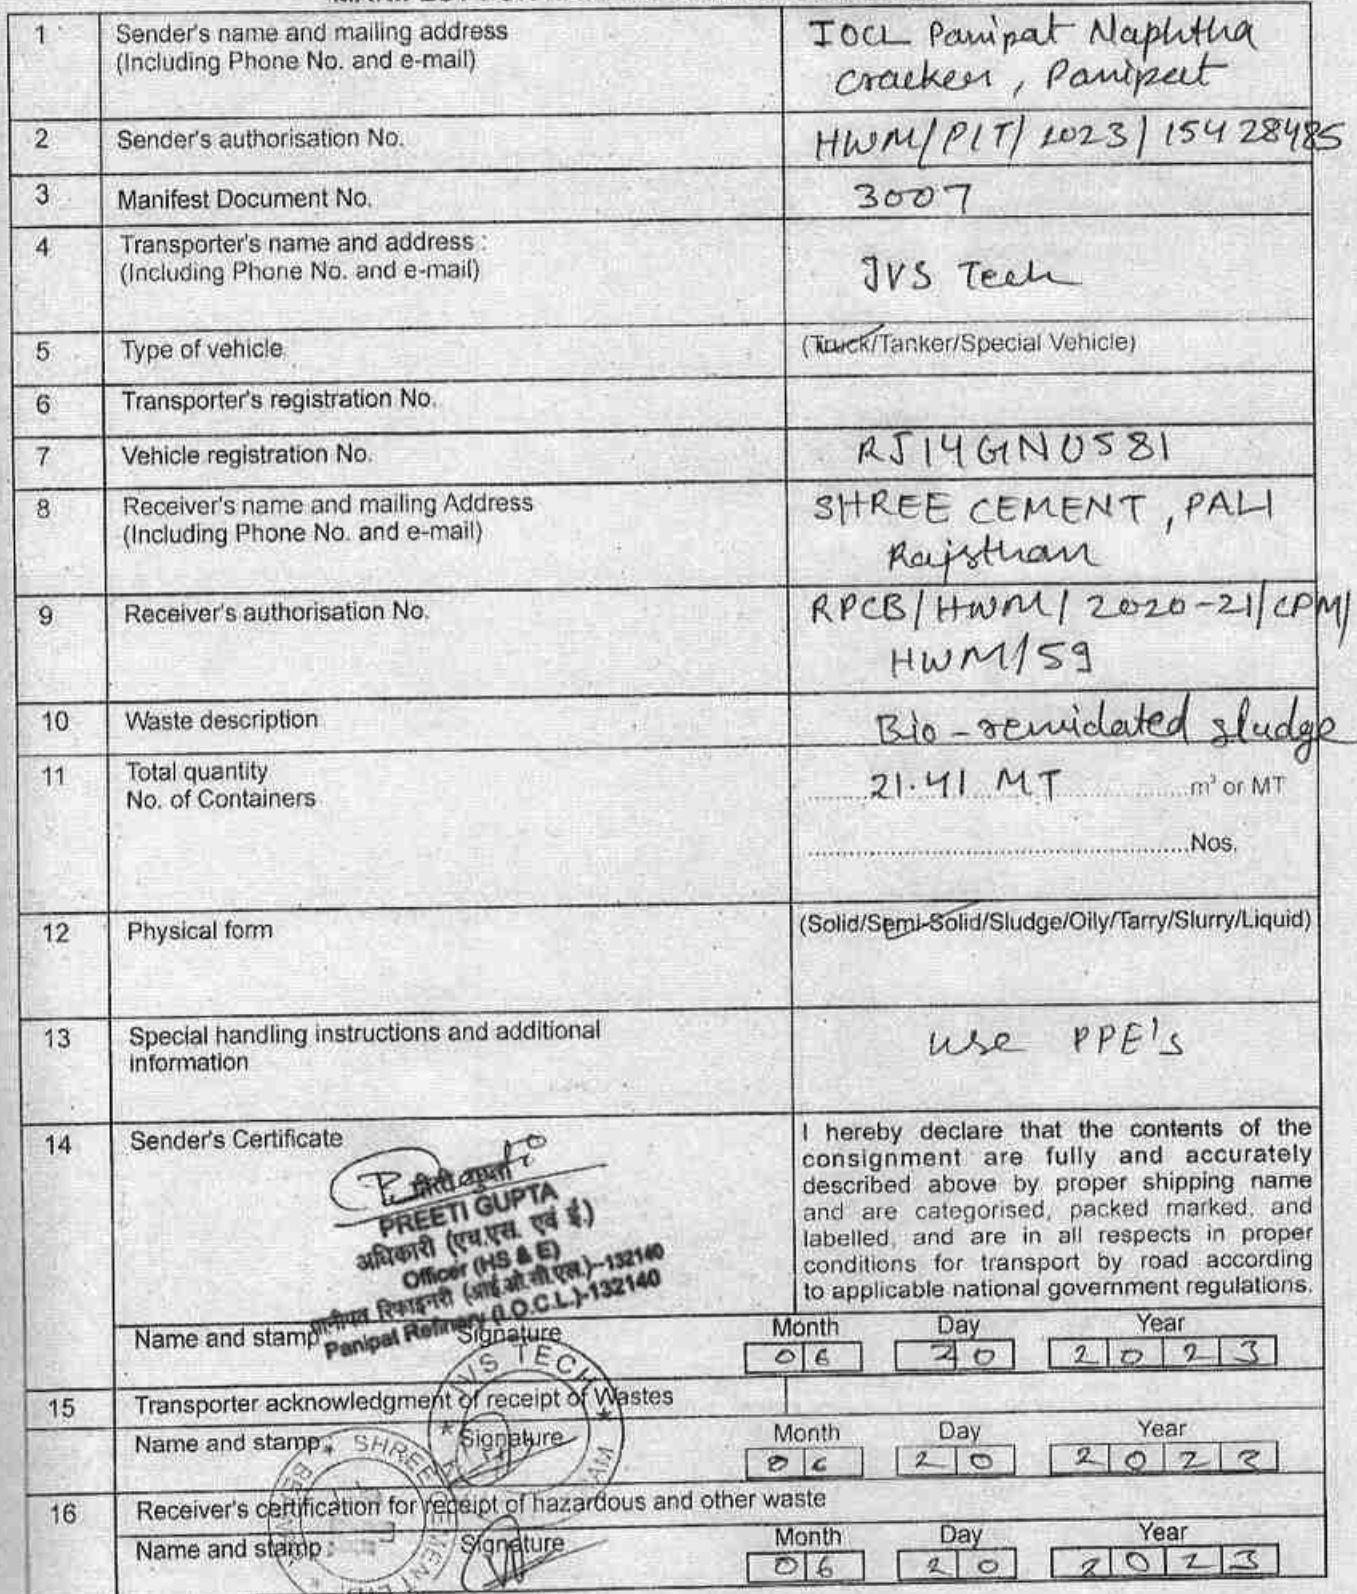 1
Sender's name and mailing address
(Including Phone No. and e-mail)
IOCL Panipat Naphtha
Cracker, Panipat
2
Sender's authorisation No.
HWM/PIT/2023/15428485
3
Manifest Document No.
3007
4
Transporter's name and address :
(Including Phone No. and e-mail)
JVS Tech
5
Type of vehicle
(Truck/Tanker/Special Vehicle)
6
Transporter's registration No.
7
Vehicle registration No.
RJ14GN0581
8
Receiver's name and mailing Address
(Including Phone No. and e-mail)
SHREE CEMENT, PALI
Rajsthan
9
Receiver's authorisation No.
RPCB/HWM/2020-21/CPM/
HWM/59
10
Waste description
Bio-remidated sludge
11
Total quantity
No. of Containers
21.41 MT m³ or MT
Nos.
12
Physical form
(Solid/Semi-Solid/Sludge/Oily/Tarry/Slurry/Liquid)
13
Special handling instructions and additional
information
use PPE's
14
Sender's Certificate
I hereby declare that the contents of the
consignment are fully and accurately
described above by proper shipping name
and are categorised, packed marked, and
labelled, and are in all respects in proper
conditions for transport by road according
to applicable national government regulations.
गुप्ता
PREETI GUPTA
अधिकारी (एच.एस. एवं ई.)
Officer (HS & E)
पानीपत रिफाइनरी (आई.ओ.सी.एल.)-132140
Panipat Refinery (I.O.C.L.)-132140
Name and stamp
Signature
Month Day Year
06 20 2023
VS TECH
15
Transporter acknowledgment of receipt of Wastes
Name and stamp :
Signature
Month Day Year
06 20 2023
SHREE CEMENT
16
Receiver's certification for receipt of hazardous and other waste
Name and stamp :
Signature
Month Day Year
06 20 2023